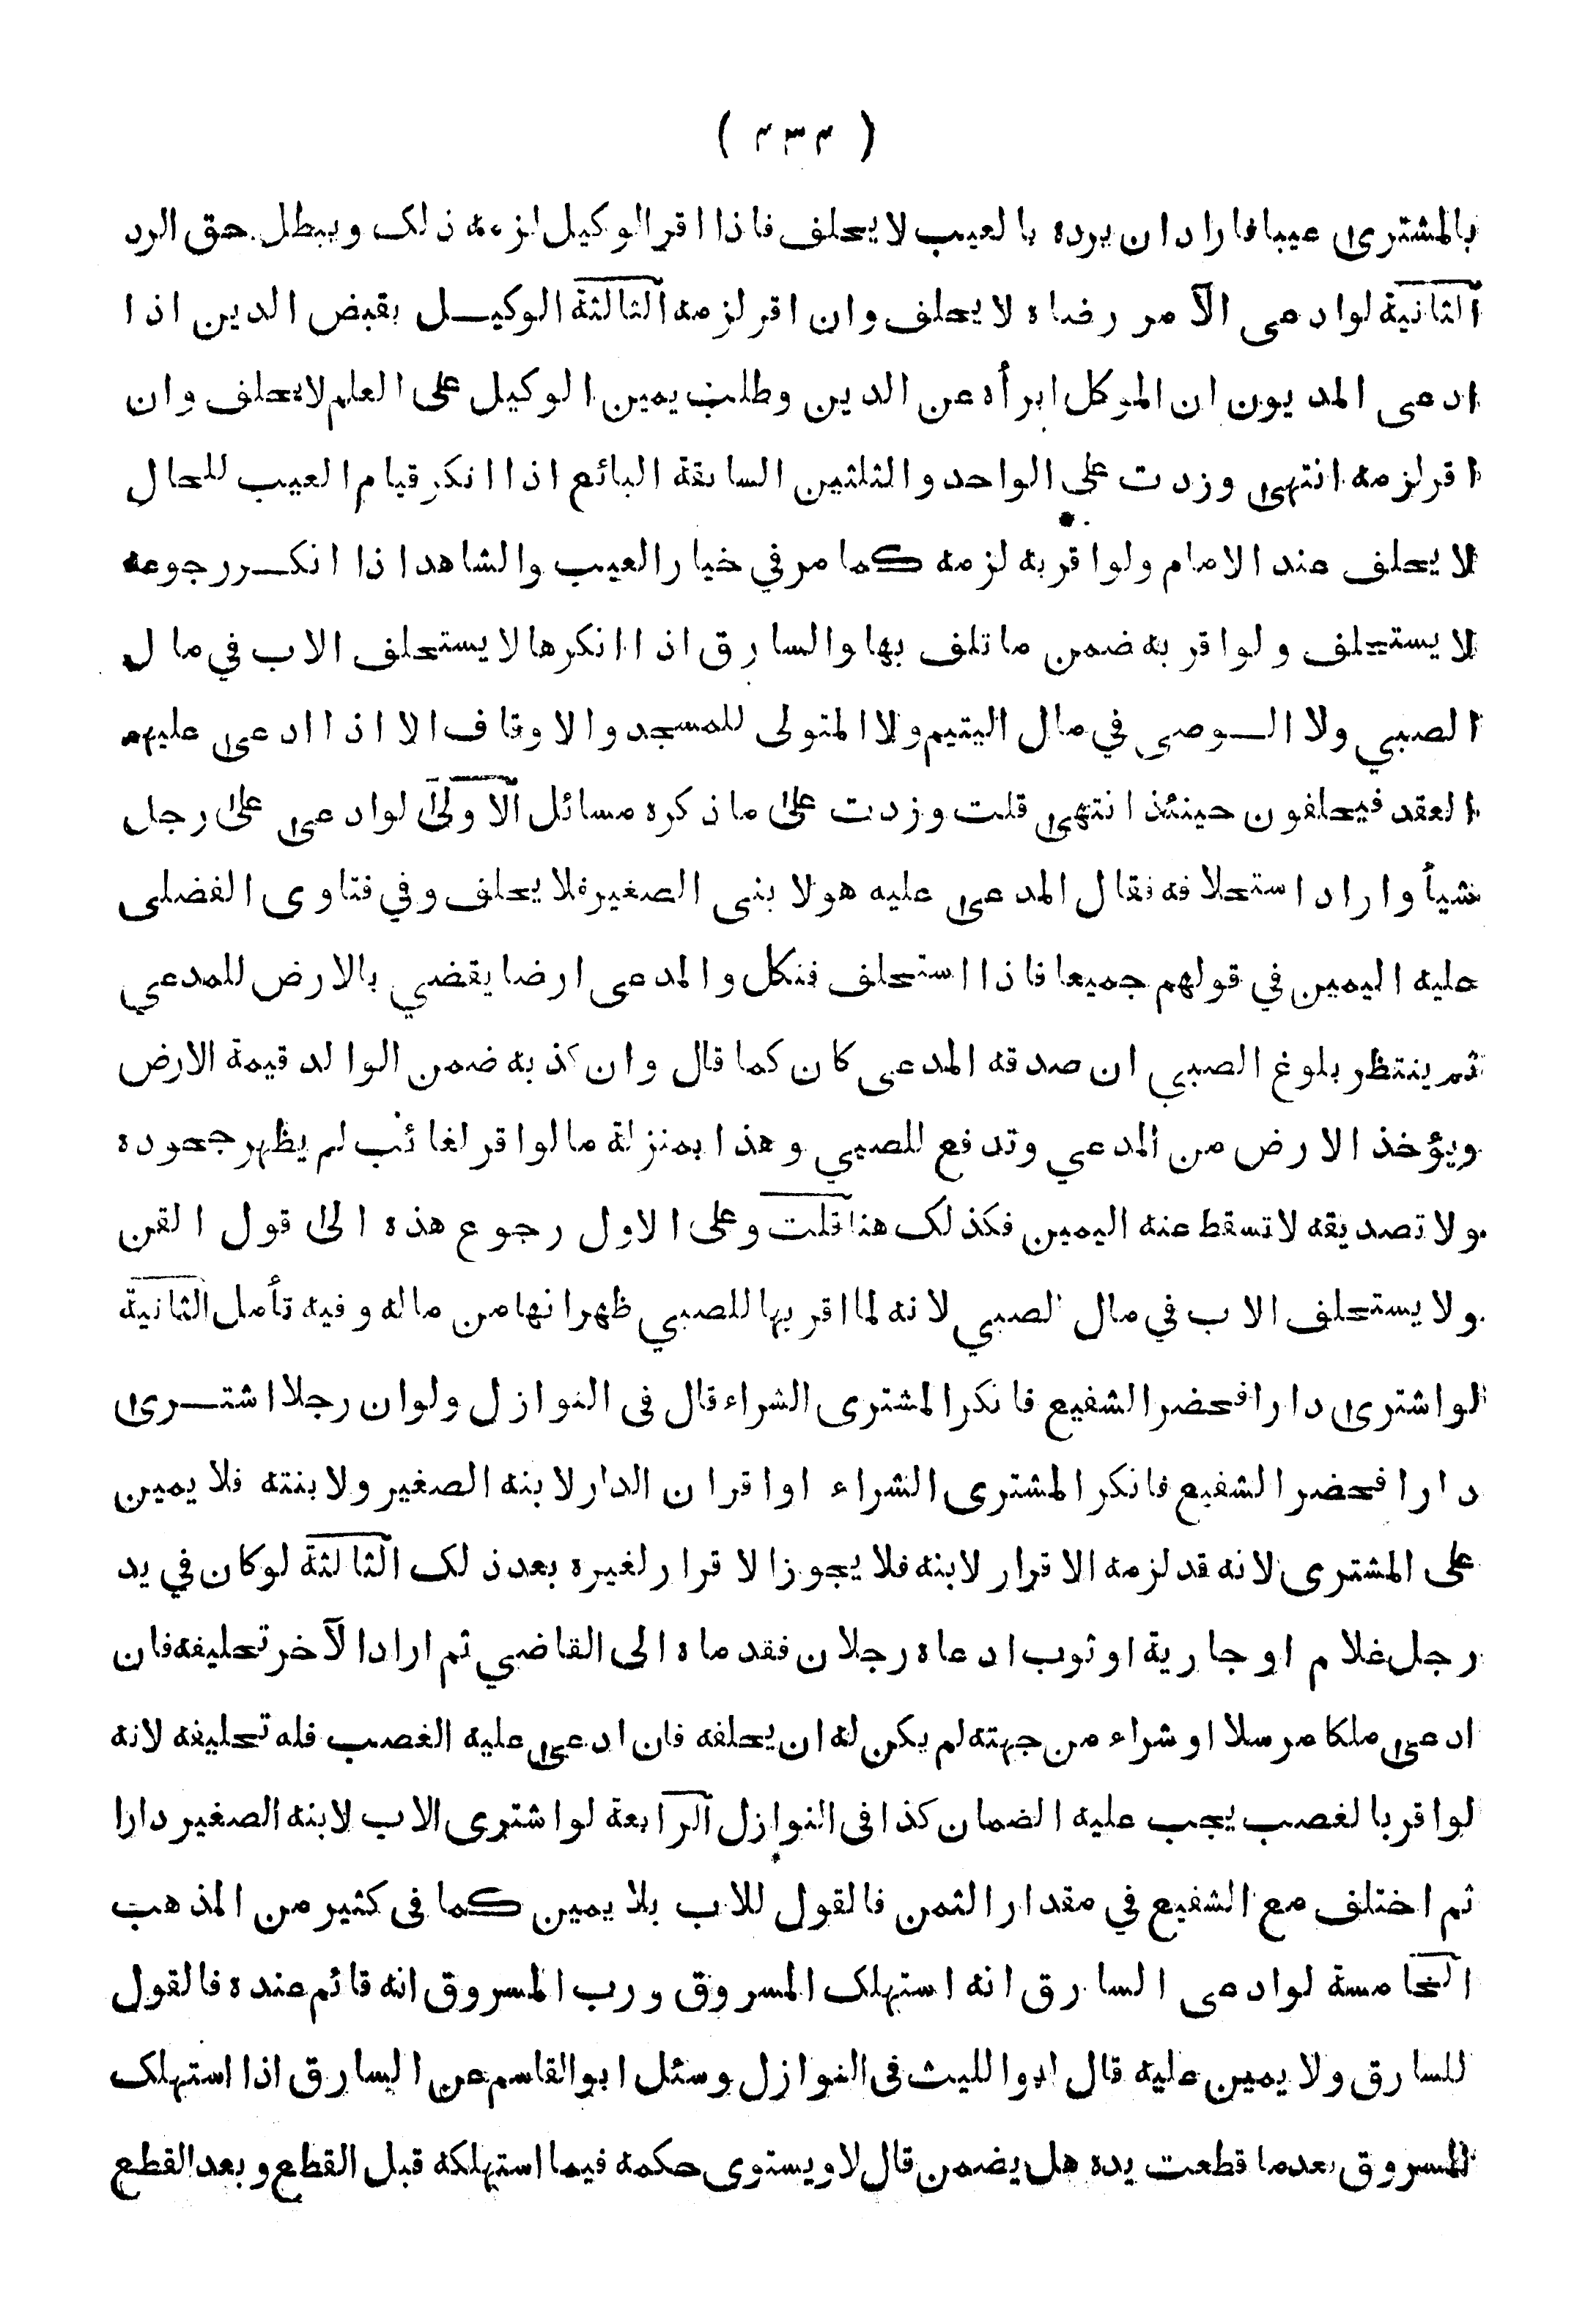 ( ٤٣٤ )
بالمشترى عيبا فاراد ان يرده بالعيب لا يحلف فاذا اقر الوكيل لزمه ذلك ويبطل حق الرد
الثانية لو ادعى الآمر رضاه لا يحلف وان اقر لزمه الثالثة الوكيل بقبض الدين اذا
ادعى المديون ان الموكل ابرأه عن الدين وطلب يمين الوكيل على العلم لا يحلف وان
اقر لزمه انتهى وزدت على الواحد والثلثين السابقة البائع اذا انكر قيام العيب للحال
لا يحلف عند الامام ولو اقر به لزمه كما مر في خيار العيب والشاهد اذا انكر رجوعه
لا يستحلف ولو اقر به ضمن ما تلف بها والسارق اذا انكرها لا يستحلف الاب في مال
الصبي ولا الوصى في مال اليتيم ولا المتولى للمسجد والاوقاف الا اذا ادعى عليهم
العقد فيحلفون حينئذ انتهى قلت وزدت على ما ذكره مسائل الاولى لو ادعى على رجل
شيأ واراد استحلافه فقال المدعى عليه هو لابنى الصغير فلا يحلف وفي فتاوى الفضلى
عليه اليمين في قولهم جميعا فاذا استحلف فنكل والمدعى ارضا يقضي بالارض للمدعي
ثم ينتظر بلوغ الصبي ان صدقه المدعى كان كما قال وان كذبه ضمن الوالد قيمة الارض
ويؤخذ الارض من المدعي وتدفع للصبي وهذا بمنزلة ما لو اقر لغائب لم يظهر جحوده
ولا تصديقه لا تسقط عنه اليمين فكذلك هنا قلت وعلى الاول رجوع هذه الى قول القن
ولا يستحلف الاب في مال الصبي لانه لما اقر بها للصبي ظهر انها من ماله وفيه تأمل الثانية
لو اشترى دارا فحضر الشفيع فانكر المشترى الشراء قال فى النوازل ولو ان رجلا اشترى
دارا فحضر الشفيع فانكر المشترى الشراء او اقر ان الدار لابنه الصغير ولا بنته فلا يمين
على المشترى لانه قد لزمه الاقرار لابنه فلا يجوز الاقرار لغيره بعد ذلك الثالثة لو كان في يد
رجل غلام او جارية او ثوب ادعاه رجلان فقدماه الى القاضي ثم اراد الآخر تحليفه فان
ادعى ملكا مرسلا او شراء من جهته لم يكن له ان يحلفه فان ادعى عليه الغصب فله تحليفه لانه
لو اقر بالغصب يجب عليه الضمان كذا فى النوازل الرابعة لو اشترى الاب لابنه الصغير دارا
ثم اختلف مع الشفيع في مقدار الثمن فالقول للاب بلا يمين كما فى كثير من المذهب
الخامسة لو ادعى السارق انه استهلك المسروق ورب المسروق انه قائم عنده فالقول
للسارق ولا يمين عليه قال ابو الليث فى النوازل وسئل ابو القاسم عن السارق اذا استهلك
المسروق بعدما قطعت يده هل يضمن قال لا ويستوى حكمه فيما استهلكه قبل القطع وبعد القطع